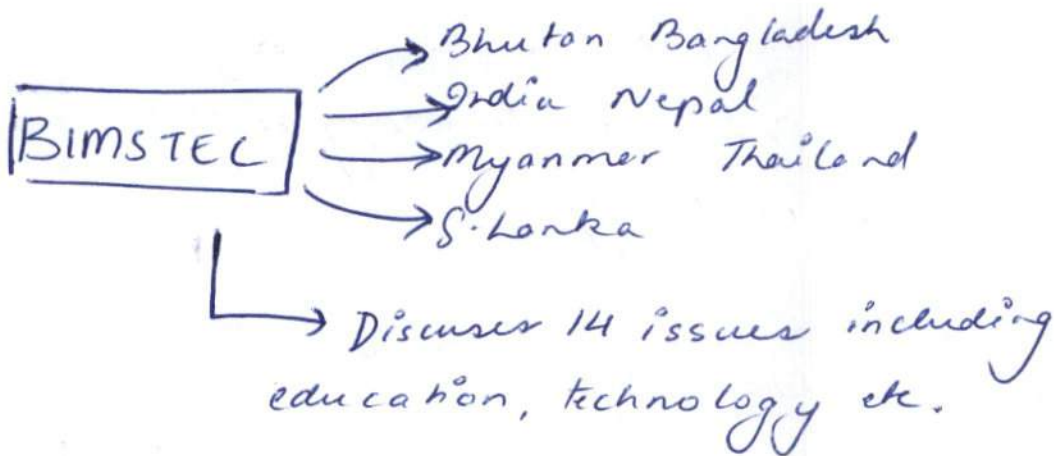 Bhutan Bangladesh
India Nepal
BIMSTEC
Myanmer Thailand
S. Lanka
Discuses 14 issues including
education, technology etc.